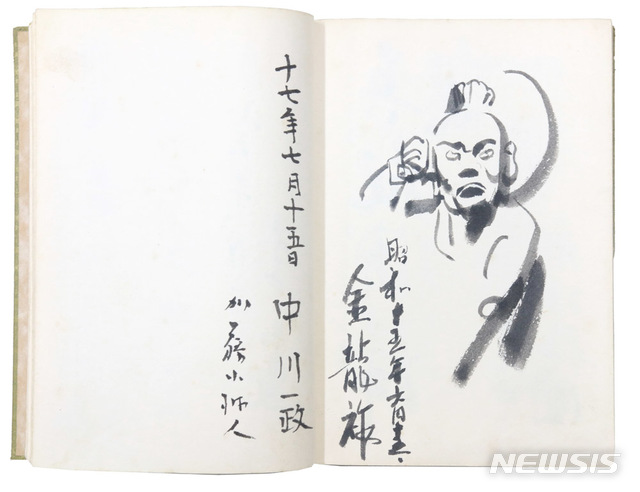 昭和十五年六月十五、
金龍
十七年七月十五日 中川一政
加藤小人
NEWSIS